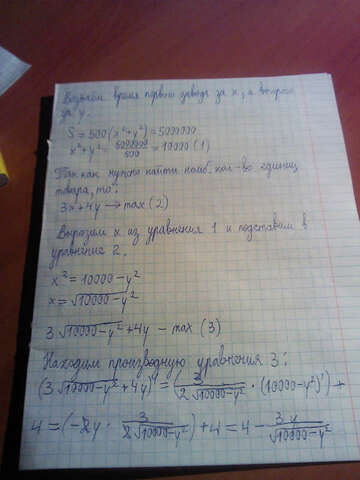 Возьмём время первого завода за x, а второго
за y.
S = 500(x²+y²) = 5000000
x²+y² = 5000000/500 = 10000 (1)
Так как нужно найти наиб. кол-во единиц
товара, то:
3x+4y → max (2)
Выразим x из уравнения 1 и подставим в
уравнение 2.
x² = 10000-y²
x = √(10000-y²)
3√(10000-y²)+4y - max (3)
Находим производную уравнения 3:
(3√(10000-y²)+4y)' = (3/(2√(10000-y²)) · (10000-y²)')+
4 = (-2y · 3/(2√(10000-y²)))+4 = 4 - 3y/√(10000-y²)